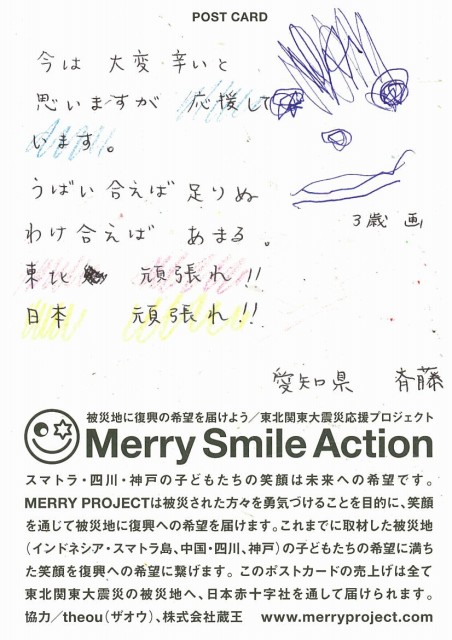 POST CARD
今は 大変 辛いと
思いますが 応援して
います。
うばい合えば 足りぬ
わけ合えば あまる。
東北 頑張れ!!
日本 頑張れ!!
3歳 画
愛知県 斉藤
被災地に復興の希望を届けよう/東北関東大震災応援プロジェクト
Merry Smile Action
スマトラ・四川・神戸の子どもたちの笑顔は未来への希望です。
MERRY PROJECTは被災された方々を勇気づけることを目的に、笑顔
を通じて被災地に復興への希望を届けます。これまでに取材した被災地
(インドネシア・スマトラ島、中国・四川、神戸)の子どもたちの希望に満ち
た笑顔を復興への希望に繋げます。このポストカードの売上げは全て
東北関東大震災の被災地へ、日本赤十字社を通して届けられます。
協力/theou(ザオウ)、株式会社蔵王 www.merryproject.com